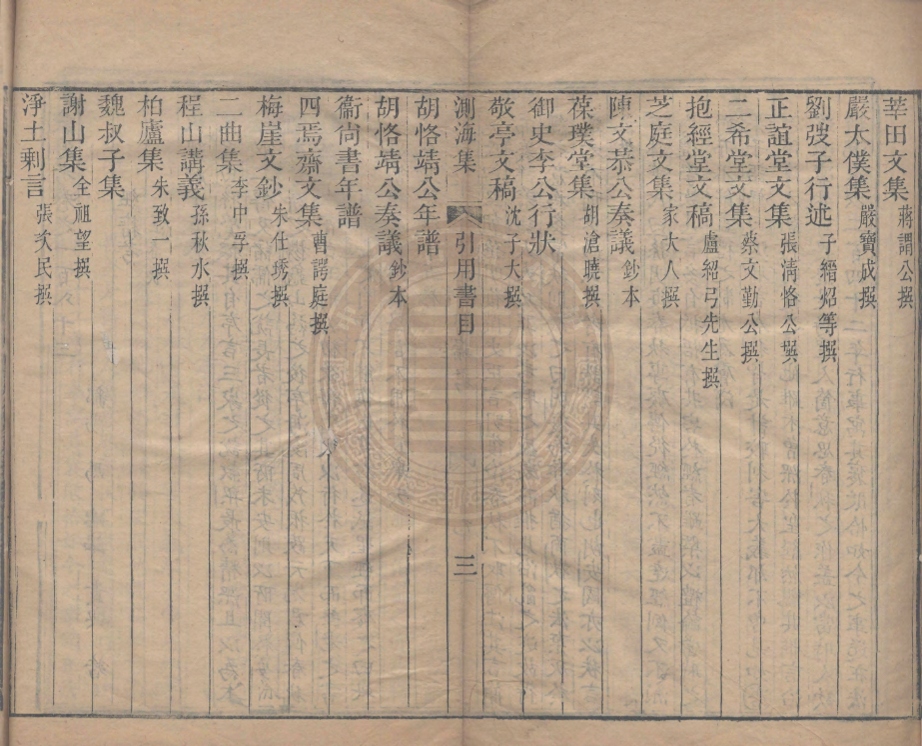 莘田文集 蔣謂公撰
嚴太僕集 嚴寶成撰
劉弢子行述 子縉炤等撰
正誼堂文集 張清恪公撰
二希堂文集 蔡文勤公撰
抱經堂文稿 盧紹弓先生撰
芝庭文集 家大人撰
陳文恭公奏議 鈔本
葆璞堂集 胡滄曉撰
御史李公行狀
敬亭文稿 沈子大撰
測海集 引用書目 三
胡恪靖公年譜
胡恪靖公奏議 鈔本
衞尚書年譜
四焉齋文集 曹諤庭撰
梅崖文鈔 朱仕琇撰
二曲集 李中孚撰
程山講義 孫秋水撰
柏廬集 朱致一撰
魏叔子集
謝山集 全祖望撰
淨土剩言 張民撰